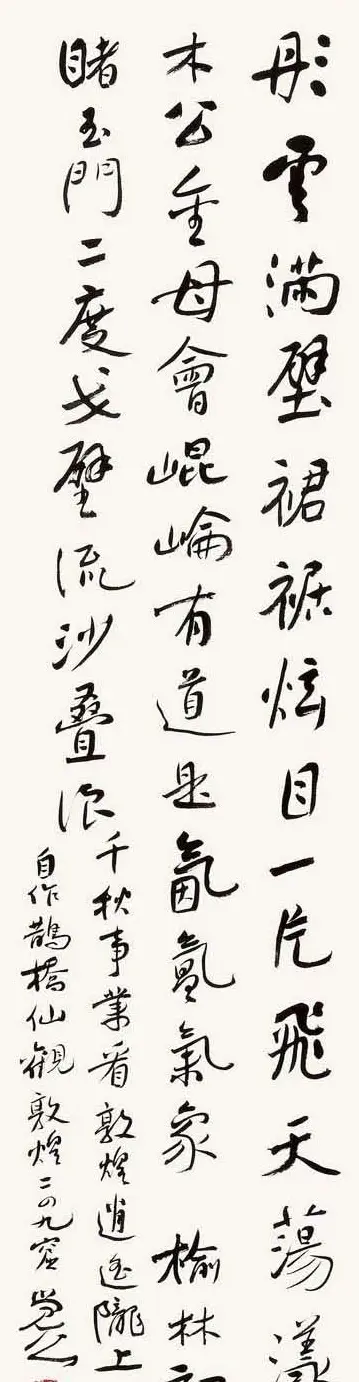 彤雲滿壁裙裾炫目一片飛天蕩漾
木公金母會崐崘有道是氤氳氣象 榆林初
睹玉門二度戈壁流沙疊浪
千秋事業看敦煌逍遙隴上
自作鵲橋仙觀敦煌二四九窟